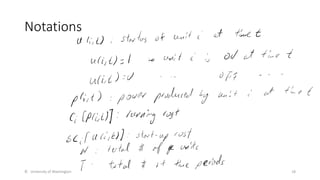 Notations
u(i,t) : status of unit i at time t
u(i,t)=1 unit i is ON at time t
u(i,t)=0 OFF
p(i,t) : power produced by unit i at time t
Ci [p(i,t)] : running cost
SCi [u(i,t)] : start-up cost
N : total # of units
T : total # of time periods
© University of Washington 16